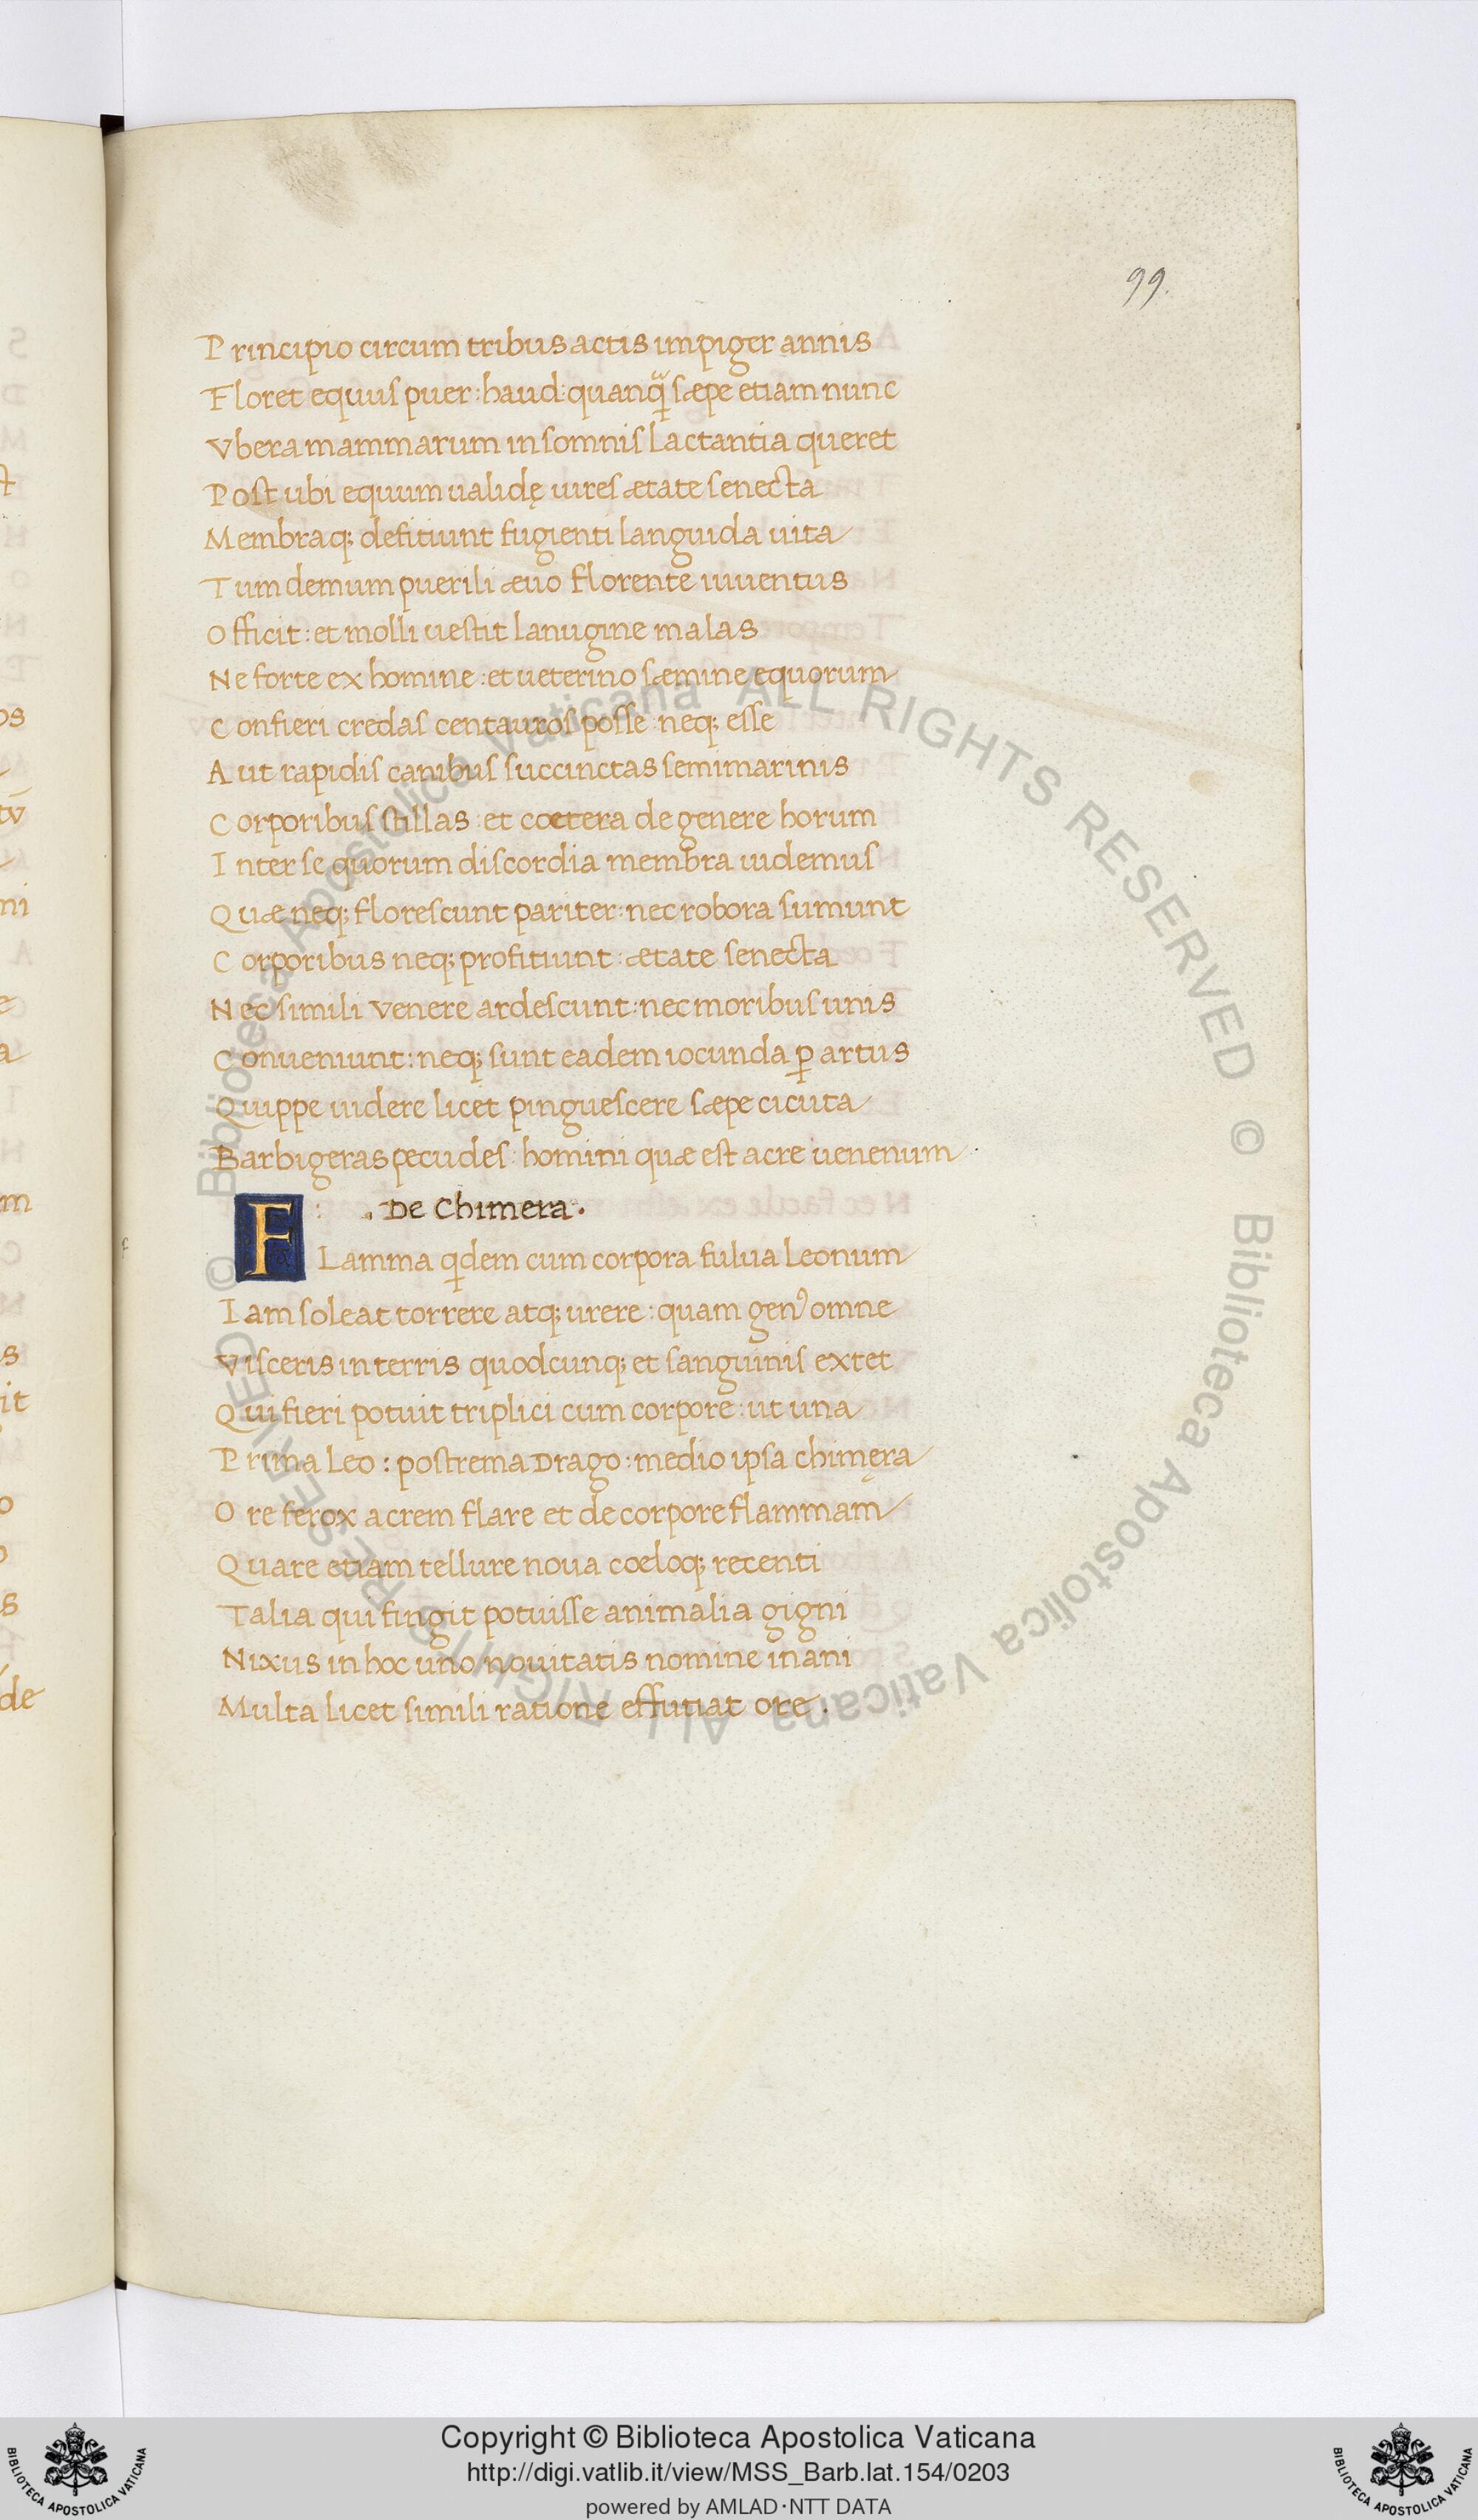 99.
Principio circum tribus actis impiger annis
Floret equus puer: haud: quanq̃ sæpe etiam nunc
Vbera mammarum in somnis Lactantia queret
Post ubi equum ualidę uires ætate senecta
Membraq; defitiunt fugienti languida uita
Tum demum puerili æuo florente iuuentus
Officit: et molli uestit lanugine malas
Ne forte ex homine: et ueterino sæmine equorum
Confieri credas centauros posse: neq; esse
Aut rapidis canibus succinctas semimarinis
Corporibus stillas: et coetera de genere horum
Inter se quorum discordia membra uidemus
Quæ neq; florescunt pariter: nec robora sumunt
Corporibus neq; profitiunt: ætate senecta
Nec simili venere ardescunt: nec moribus unis
Conueniunt: neq; sunt eadem iocunda ꝑ artus
Quippe uidere licet pinguescere sæpe cicuta
Barbigeras pecudes: homini quæ est acre uenenum
.De Chimera.
FLamma qdem cum corpora fulua Leonum
Iam soleat torrere atq; urere: quam genꝰ omne
Visceris in terris quodcunq; et sanguinis extet
Qui fieri potuit triplici cum corpore: ut una
Prima Leo: postrema Drago: medio ipsa chimęra
Ore ferox acrem flare et de corpore flammam
Quare etiam tellure noua coeloq; recenti
Talia qui fingit potuisse animalia gigni
Nixus in hoc uno nouitatis nomine inani
Multa licet simili ratione effutiat ore.
© Biblioteca Apostolica Vaticana ALL RIGHTS RESERVED
© Biblioteca Apostolica Vaticana ALL RIGHTS RESERVED
Copyright © Biblioteca Apostolica Vaticana
http://digi.vatlib.it/view/MSS_Barb.lat.154/0203
powered by AMLAD·NTT DATA
BIBLIOTECA APOSTOLICA VATICANA
BIBLIOTECA APOSTOLICA VATICANA